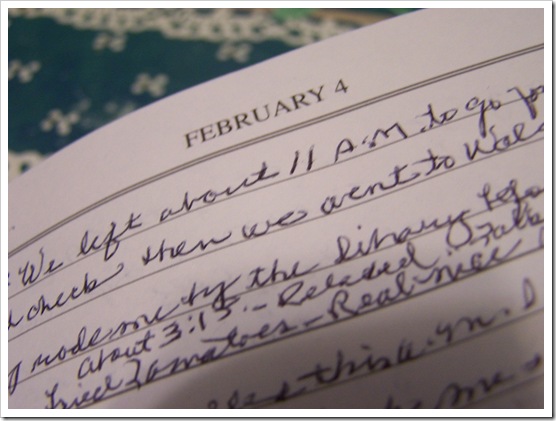 FEBRUARY 4
We left about 11 A.M. to go
check then we went to Wal
me by the library
about 3:15 - Relaxed
Fried Tomatoes - Real nice
this a.m.
me